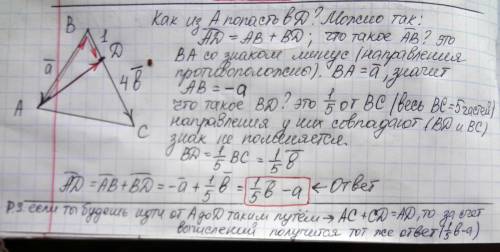 Как из А попасть в D? Можно так:
AD = AB + BD; что такое АВ? это
ВА со знаком минус (направления
противоположны). BA = a, значит
AB = -a
что такое BD? это 1/5 от ВС (весь ВС=5 частей)
направления у них совпадают (BD и BC)
знак не поменяется.
BD = 1/5 BC = 1/5 b
AD = AB + BD = -a + 1/5 b = 1/5 b - a ← Ответ
P.S: если ты будешь идти от А до D таким путём → AC + CD = AD, то за счёт
вычислений получится тот же ответ (1/5 b - a)
B
1
D
a
4
b
A
C